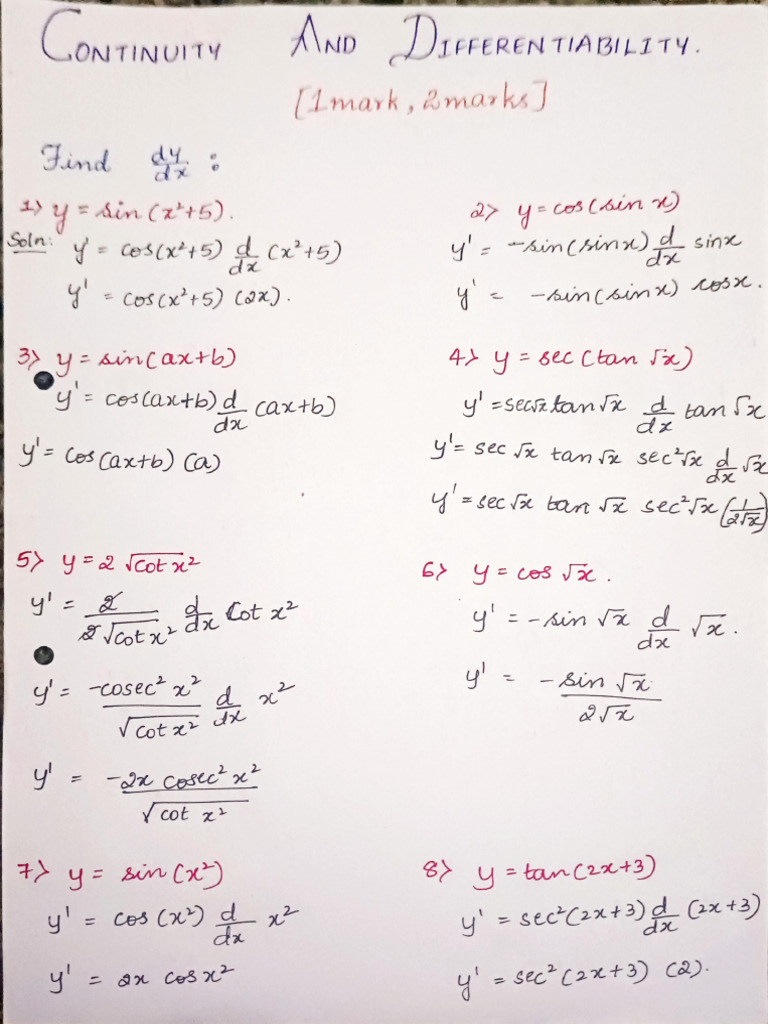 CONTINUITY AND DIFFERENTIABILITY.
[1mark, 2marks]
Find dy/dx :
1) y = sin(x²+5).
Soln: y' = cos(x²+5) d/dx (x²+5)
y' = cos(x²+5) (2x).
2) y = cos(sin x)
y' = -sin(sinx) d/dx sinx
y' = -sin(sinx) cosx.
3) y = sin(ax+b)
y' = cos(ax+b) d/dx (ax+b)
y' = cos(ax+b) (a)
4) y = sec(tan √x)
y' = sec√x tan√x d/dx tan√x
y' = sec √x tan√x sec²√x d/dx √x
y' = sec√x tan √x sec²√x (1/2√x)
5) y = 2 √cot x²
y' = 2/2√cot x² d/dx Cot x²
y' = -cosec² x²/√cot x² d/dx x²
y' = -2x cosec² x²/√cot x²
6) y = cos √x.
y' = -sin √x d/dx √x.
y' = -sin √x/2√x
7) y = sin(x²)
y' = cos(x²) d/dx x²
y' = 2x cosx²
8) y = tan(2x+3)
y' = sec²(2x+3) d/dx (2x+3)
y' = sec²(2x+3) (2).